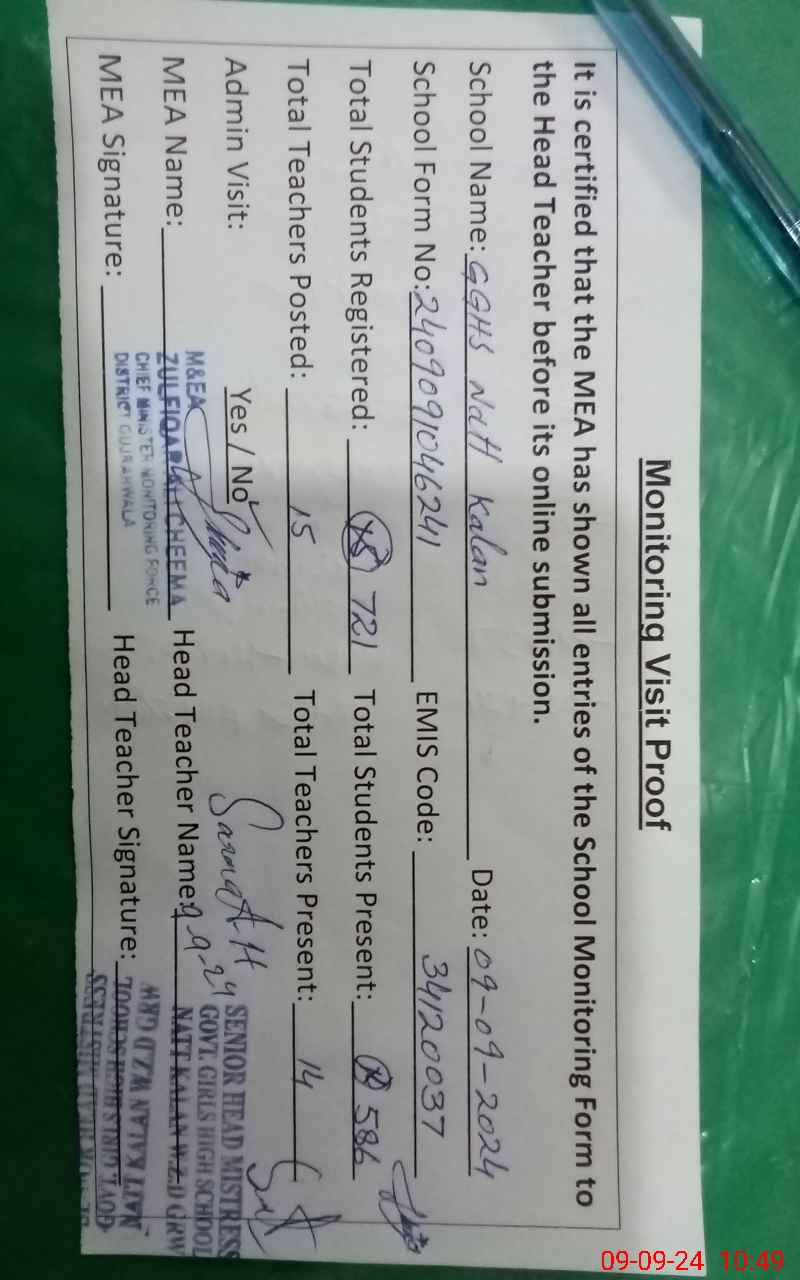 Monitoring Visit Proof
It is certified that the MEA has shown all entries of the School Monitoring Form to
the Head Teacher before its online submission.
School Name: GGHS Natt Kalan Date: 09-09-2024
School Form No: 2409091046241 EMIS Code: 34120037
Total Students Registered: 721 Total Students Present: 586
Total Teachers Posted: 15 Total Teachers Present: 14
Admin Visit: Yes / No
MEA Name: Head Teacher Name: 9-9-24
MEA Signature: Head Teacher Signature:
M&EA
ZULFIQAR ALI CHEEMA
CHIEF MINISTER MONITORING FORCE
DISTRICT GUJRANWALA
SENIOR HEAD MISTRESS
GOVT. GIRLS HIGH SCHOOL
NATT KALAN W.Z.D GRW
SENIOR HEAD MISTRESS
GOVT. GIRLS HIGH SCHOOL
NATT KALAN W.Z.D GRW
09-09-24 10:49